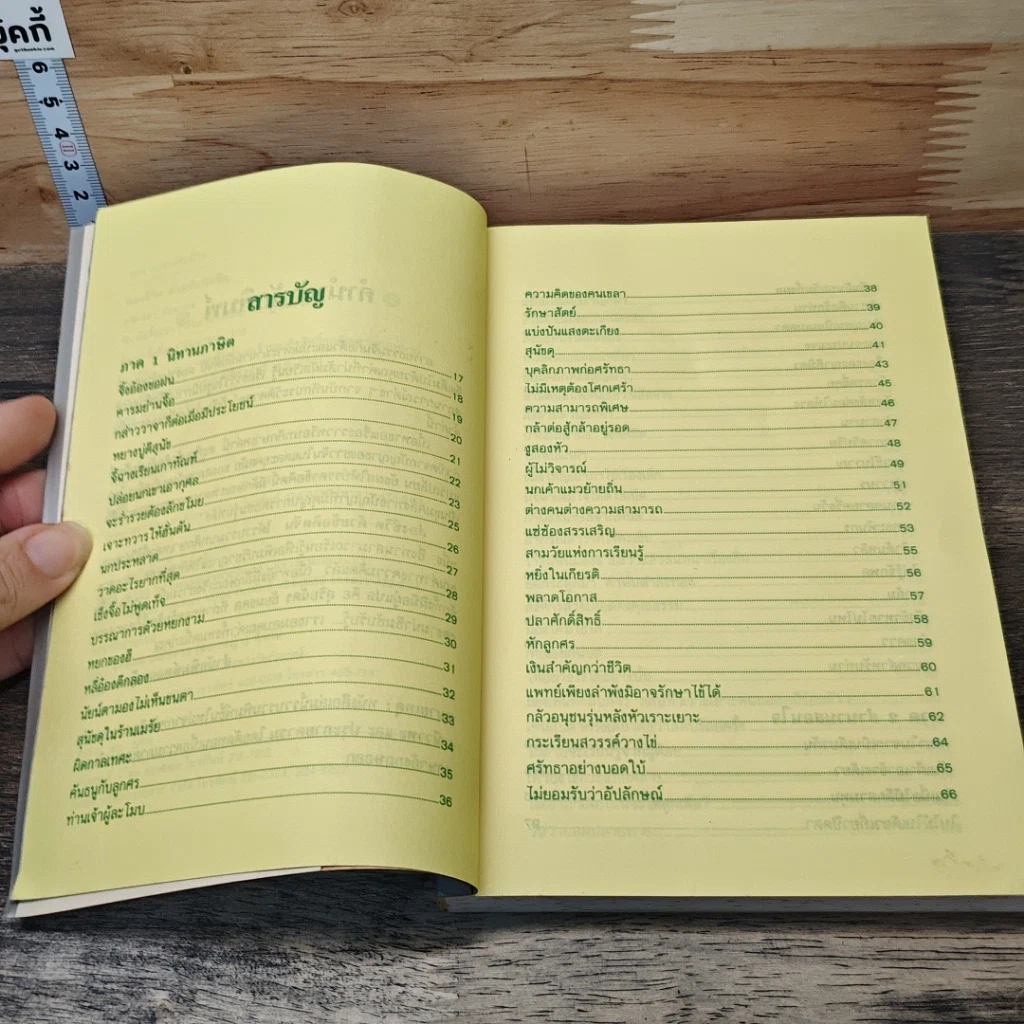 บุ๊คกี้
6
5
4
3
2
สารบัญ
ภาค 1 นิทานภาษิต
จิ้งอ๋องขอฝน 17
คารมย่านจื๊อ 18
กล่าววาจาก็ต่อเมื่อมีประโยชน์ 19
หยางปู่ตีสุนัข 20
จี้ฉางเรียนเกาทัณฑ์ 21
ปล่อยนกเขาเอากุศล 22
จะร่ำรวยต้องลักขโมย 23
เจาะทวารให้ฮั่นตัน 25
นกประหลาด 26
วาดอะไรยากที่สุด 27
เชิงจื๊อไม่พูดเท็จ 28
บรรณาการด้วยหยกงาม 29
หยกของฮี 30
หลี่อ๋องตีกลอง 31
นัยน์ตามองไม่เห็นขนตา 32
สุนัขดุในร้านเมรัย 33
ผิดกาลเทศะ 34
คันธนูกับลูกศร 35
ท่านเจ้าผู้ละโมบ 36
ความคิดของคนเขลา 38
รักษาสัตย์ 39
แบ่งปันแสงตะเกียง 40
สุนัขดุ 41
บุคลิกภาพก่อศรัทธา 43
ไม่มีเหตุต้องโศกเศร้า 45
ความสามารถพิเศษ 46
กล้าต่อสู้กล้าอยู่รอด 47
งูสองหัว 48
ผู้ไม่วิจารณ์ 49
นกเค้าแมวย้ายถิ่น 51
ต่างคนต่างความสามารถ 52
แซ่ซ้องสรรเสริญ 53
สามวัยแห่งการเรียนรู้ 55
หยิ่งในเกียรติ 56
พลาดโอกาส 57
ปลาศักดิ์สิทธิ์ 58
หักลูกศร 59
เงินสำคัญกว่าชีวิต 60
แพทย์เพียงลำพังมิอาจรักษาไข้ได้ 61
กลัวอนุชนรุ่นหลังหัวเราะเยาะ 62
กระเรียนสวรรค์วางไข่ 64
ศรัทธาอย่างบอดใบ้ 65
ไม่ยอมรับว่าอัปลักษณ์ 66